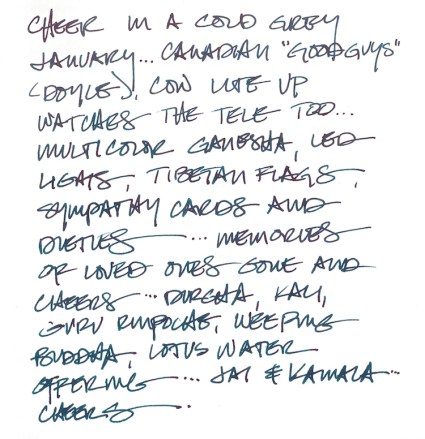 CHEER IN A COLD GREY
JANUARY... CANADIAN "GOOD GUYS"
(DOYLE), COW LITE UP
WATCHES THE TELE TOO...
MULTICOLOR GANESHA, LED
LIGHTS, TIBETAN FLAGS,
SYMPATHY CARDS AND
DIETIES ... MEMORIES
OF LOVED ONES GONE AND
CHEERS... DURGHA, KALI,
GURU RINPOCHE, WEEPING
BUDDHA, LOTUS WATER
OFFERING ... JAI & KAMALA...
CHEERS .